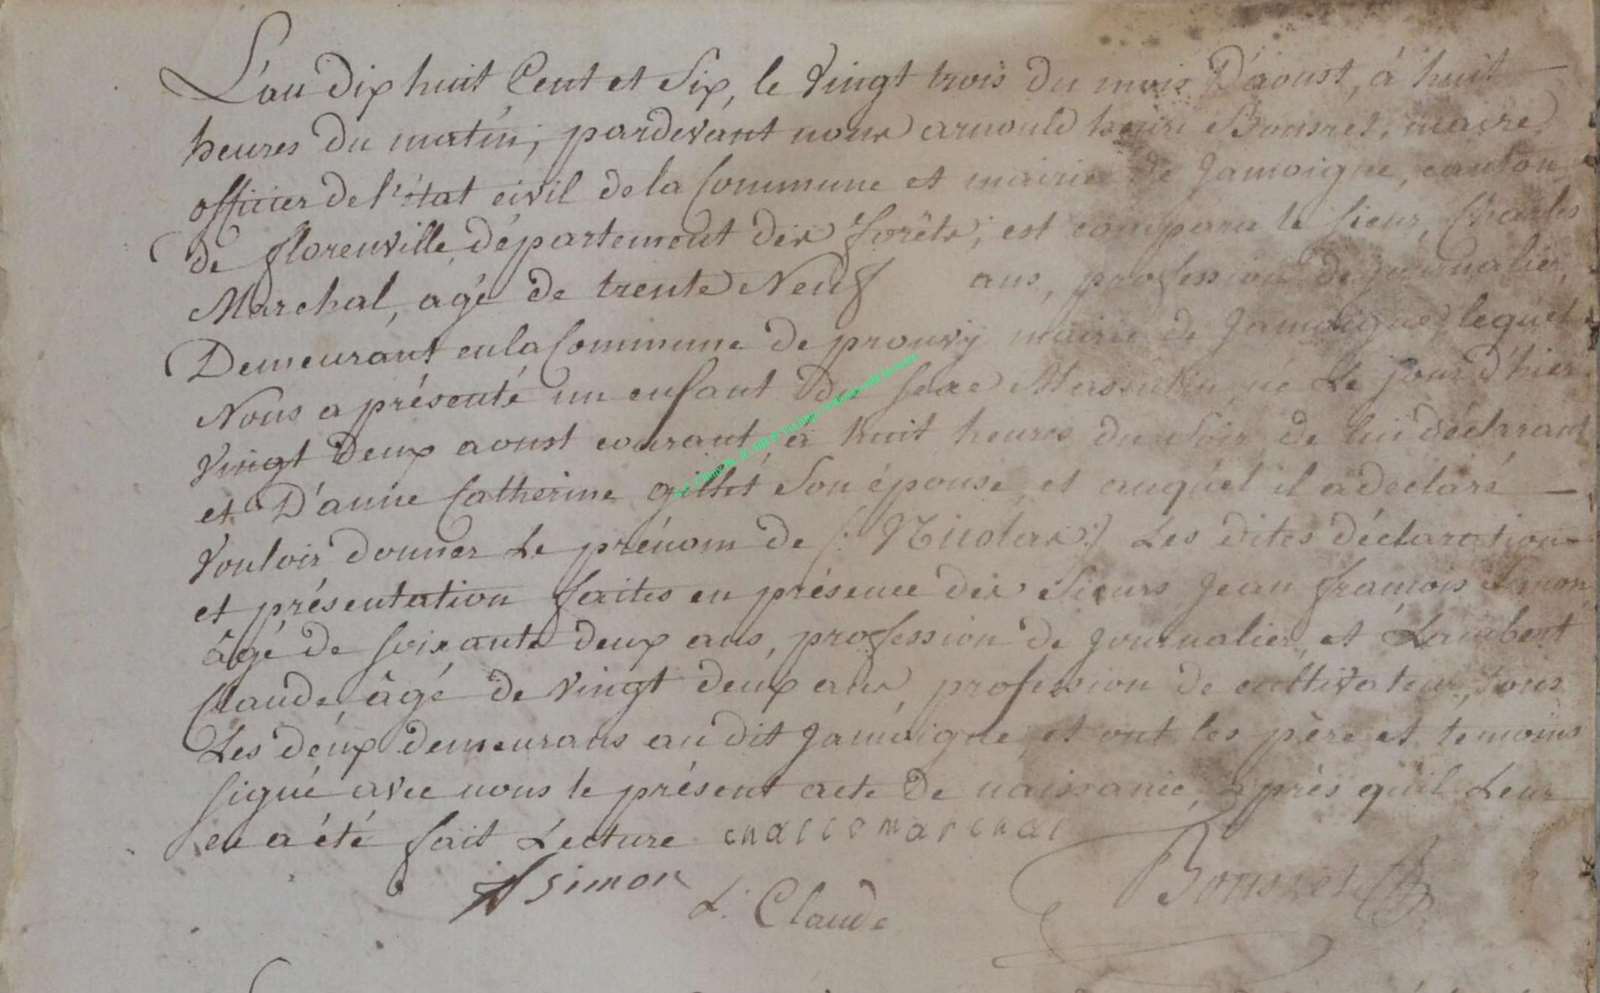 L'an dix huit Cent et Six, le Vingt trois du mois D'aoust, à huit
heures du matin, pardevant nous arnould henri Bonsret, maire
officier de l'état civil de la Commune et mairie de Jamoigne, canton
de florenville, département des forêts, est comparu le sieur, Charles
Marchal, agé de trente Neuf ans, profession de journalier,
Demeurant en la Commune de prouvy mairie de Jamoigne, lequel
Nous a présenté un enfant du sexe Masculin, né Le jour d'hier
Vingt Deux aoust courant, à huit heures du soir de lui déclarant
et D'anne Catherine gillet son épouse, et auquél il a declaré
Vouloir donner Le prénom de (: Nicolas :) Les dites déclaration
et présentation faites en présence des Sieurs Jean françois Simon
âgé de soixante deux ans, profession de journalier, et Lambert
Claude âgé de Vingt deux ans profession de cultivateur, tous
Les déux demeurans au dit Jamoigne, et ont les père et temoins
signé avec nous le présent acte de naissance, après qu'il Leur
en a été fait Lecture charle marchal
Simon L. Claude